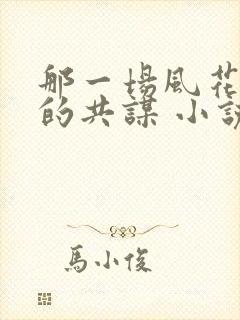 那一場風花
的共謀 小説
馬小俊